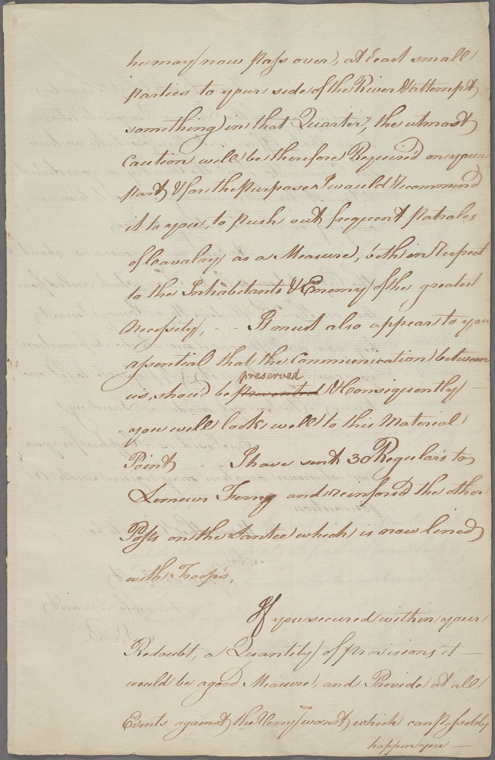 he may now pass over, at least small
parties to your side of the River & attempt
something in that Quarter, the utmost
Caution will be therefore Required on your
part, & for the purpose I would Recommend
it to you, to push out frequent Patroles
of Cavalry as a Measure, both in Respect
to the Inhabitants & Enemy of the greatest
Necessity, - - It must also appear to you
essential that the Communication between
preserved
us, should be prevented & Consequently -
you will look well to this Material
Point - I have sent 30 Regulars to
Leneuws Ferry and reinforc'd the other
Posts on the Santee which is now lined
with Troops.
If you secured within your
Redoubt, a Quantity of provisions it -
would be a good Measure, and Provide at all
Events against the Only want, which can possibly
happen you -